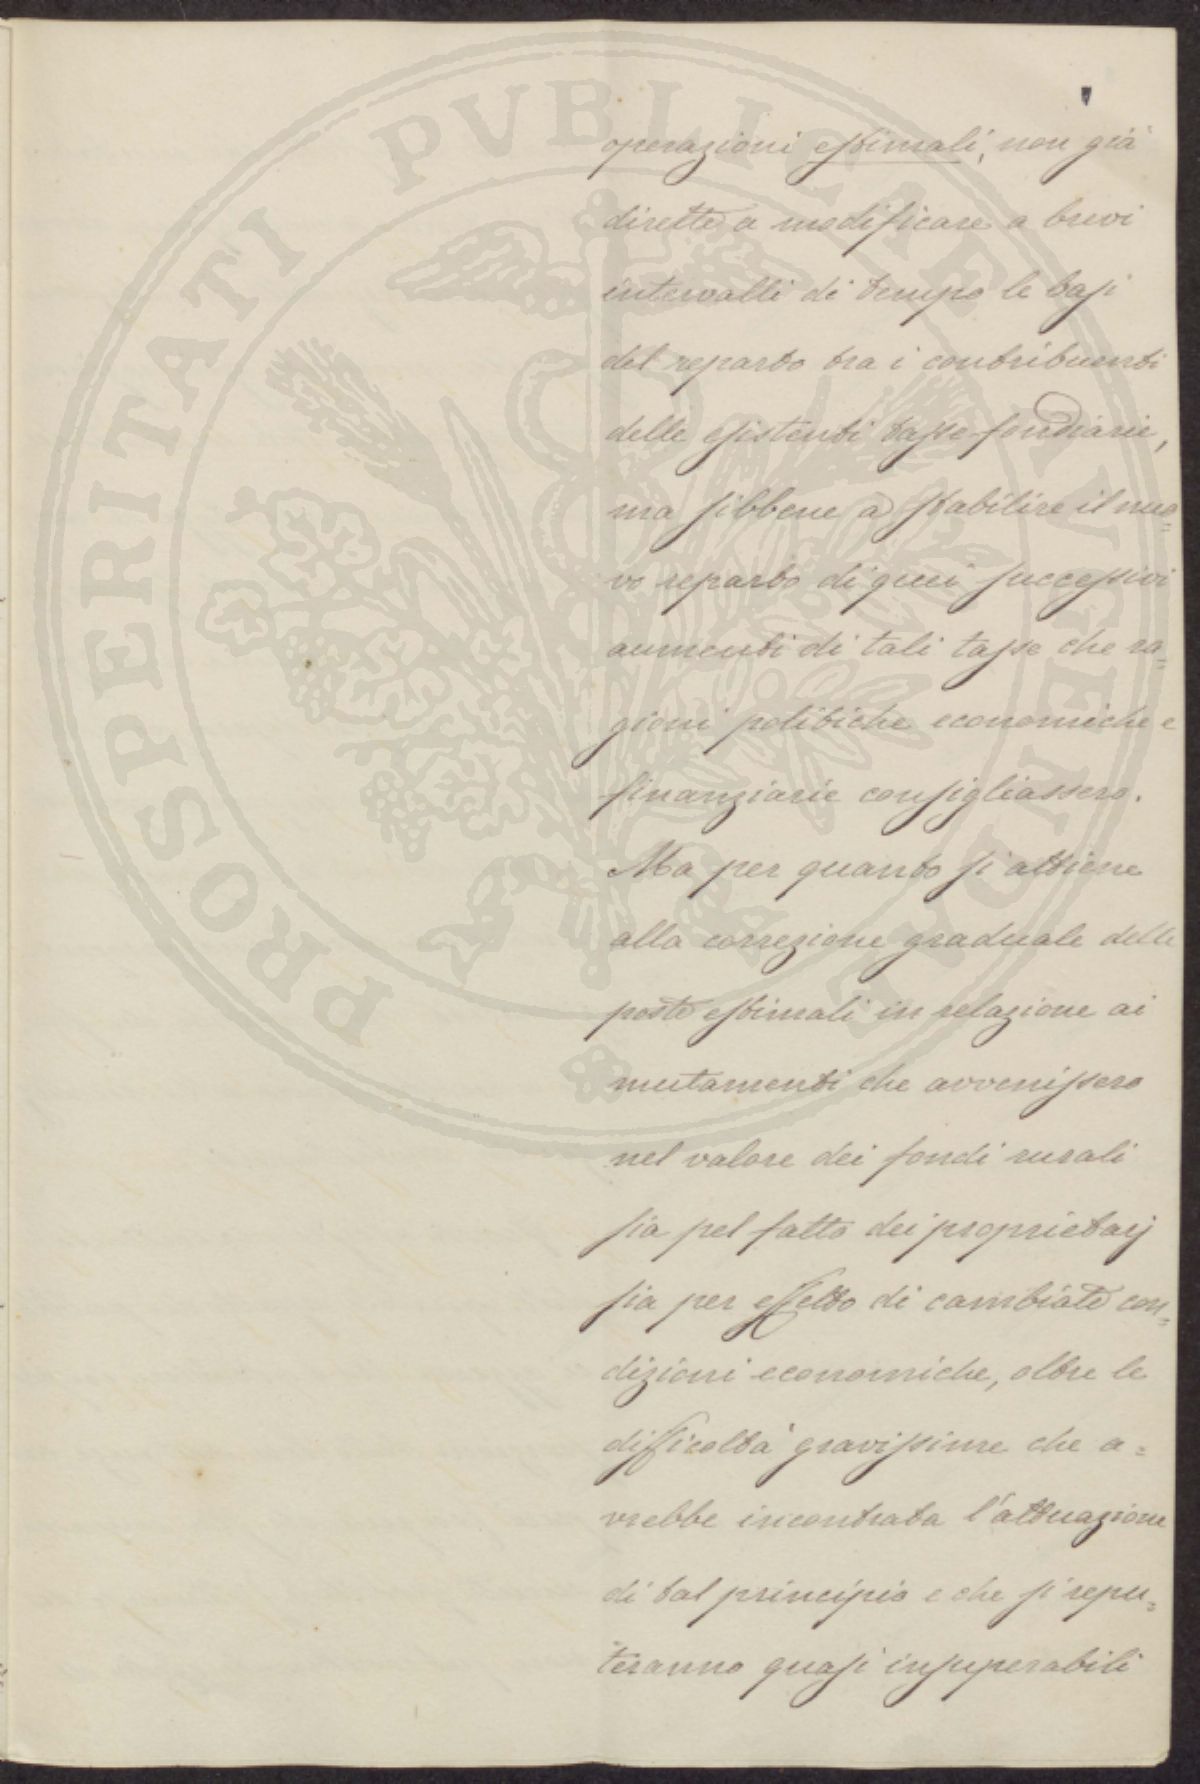 PROSPERITATI PVBLICAE AVGENDAE
operazioni estimali, non già
dirette a modificare a brevi
intervalli di tempo le basi
del reparto tra i contribuenti
delle esistenti tasse fondiarie,
ma sibbene a stabilire il nuo=
vo reparto di quei successivi
aumenti di tali tasse che ra=
gioni politiche economiche e
finanziarie consigliassero.
Ma per quanto si attiene
alla correzione graduale delle
poste estimali in relazione ai
mutamenti che avvenissero
nel valore dei fondi rurali
sia pel fatto dei proprietarj
sia per effetto di cambiate con=
dizioni economiche, oltre le
difficoltà gravissime che a=
vrebbe incontrata l'attuazione
di tal principio e che si repu=
teranno quasi insuperabili